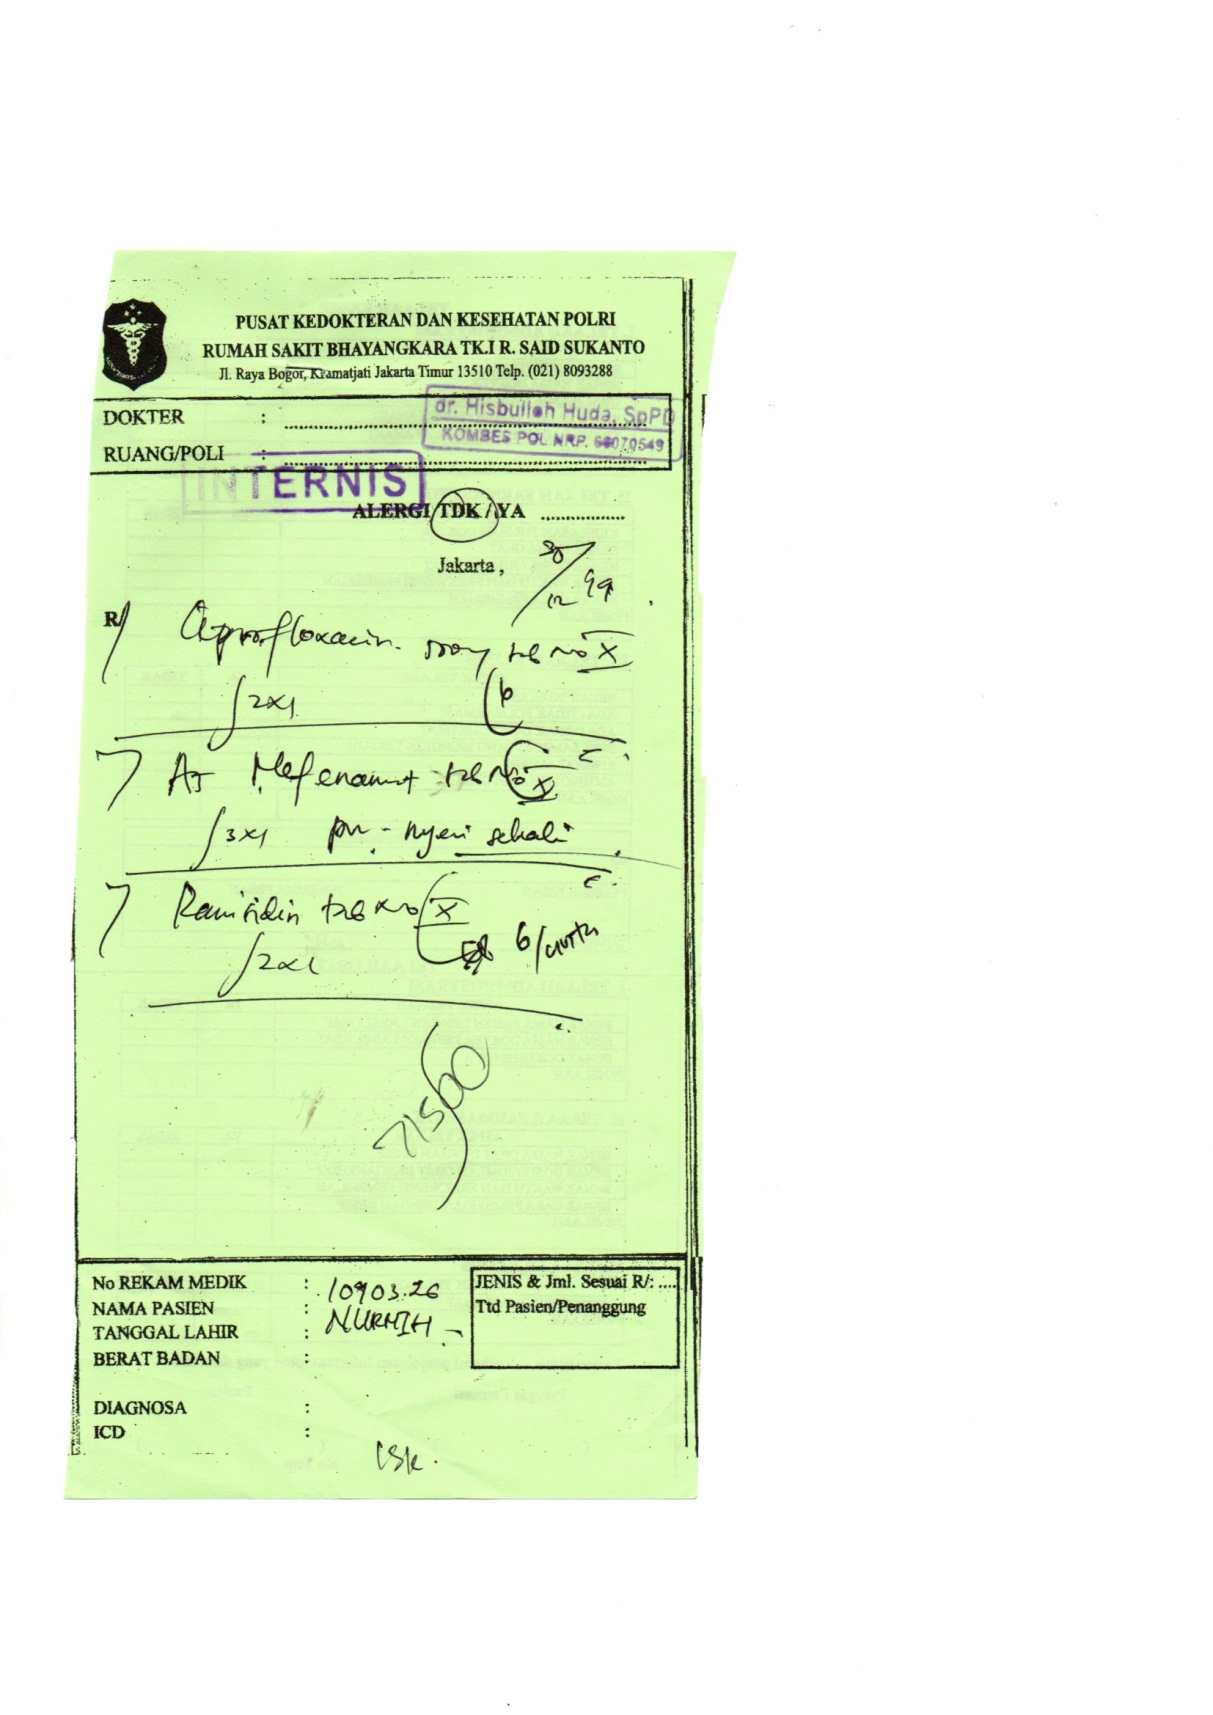 PUSAT KEDOKTERAN DAN KESEHATAN POLRI
RUMAH SAKIT BHAYANGKARA TK.I R. SAID SUKANTO
Jl. Raya Bogor, Kramatjati Jakarta Timur 13510 Telp. (021) 8093288
DOKTER :
dr. Hisbullah Huda, SpPD
KOMBES POL NRP. 66070549
RUANG/POLI :
INTERNIS
ALERGI TDK / YA
Jakarta,
R/ Ciprofloxacin tab no X
2x1
As Mefenamat tab No X
3x1 nyeri sekali
Ranitidin tab No X
2x1
71500
No REKAM MEDIK : 10903.26
NAMA PASIEN :
TANGGAL LAHIR :
BERAT BADAN :
JENIS & Jml. Sesuai R/: ....
Ttd Pasien/Penanggung
DIAGNOSA :
ICD :
ISK.